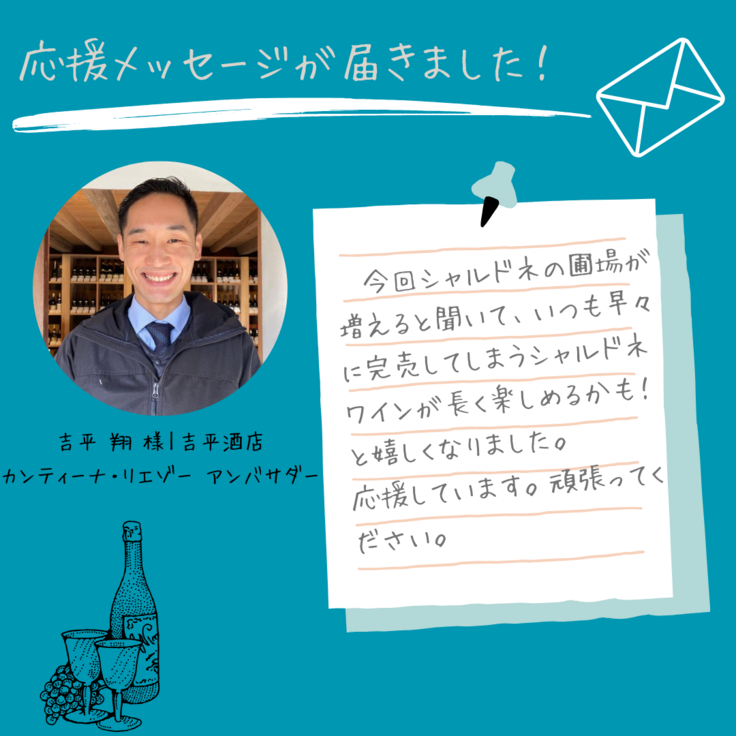 応援メッセージが届きました!
今回シャルドネの圃場が
増えると聞いて、いつも早々
に完売してしまうシャルドネ
ワインが長く楽しめるかも!
と嬉しくなりました。
応援しています。頑張ってく
ださい。
吉平 翔 様|吉平酒店
カンティーナ・リエゾー アンバサダー